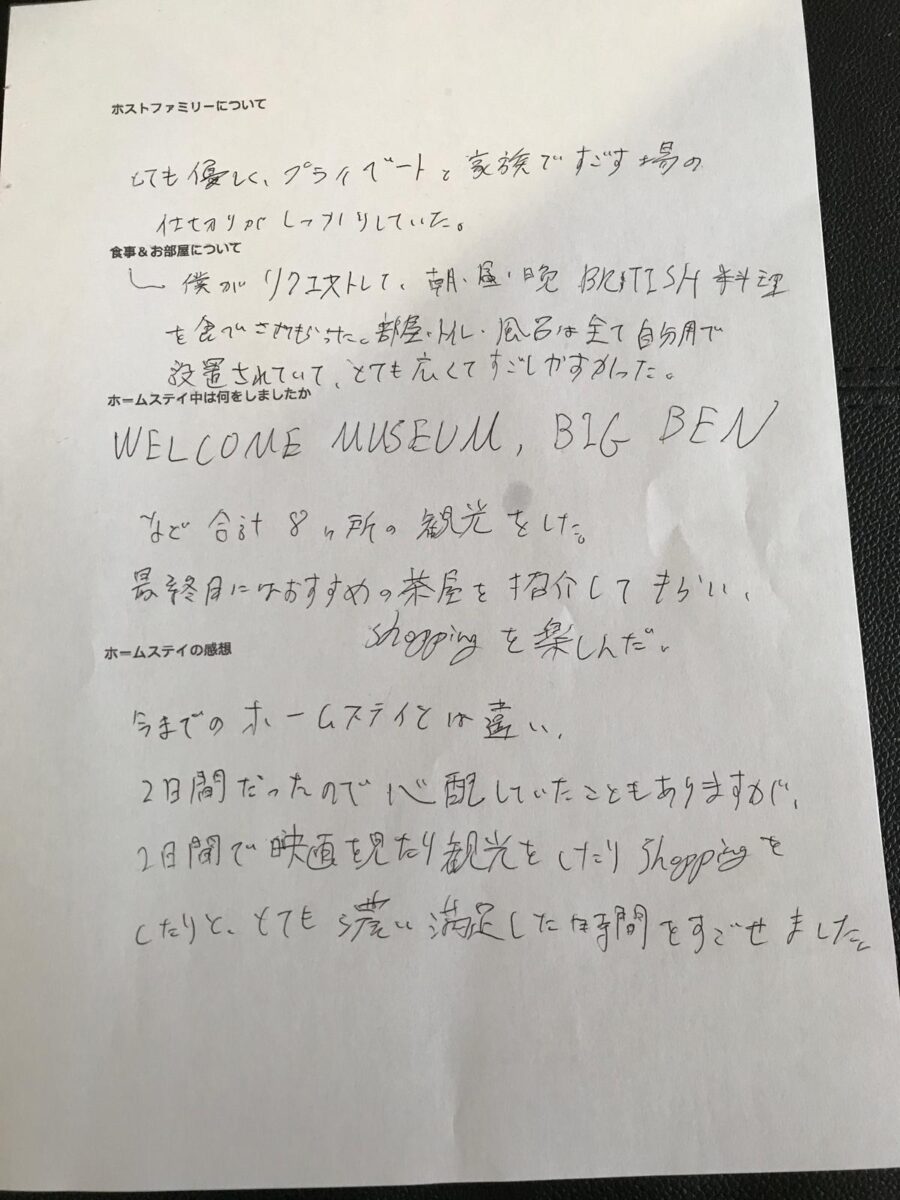 ホストファミリーについて
とても優しく、プライベートと家族ですごす場の
仕切りがしっかりしていた。
食事&お部屋について
僕がリクエストして、朝・昼・晩 BRITISH 料理
を食べさせてもらった。部屋・トイレ・風呂は全て自分用で
設置されていて、とても広くてすごしやすかった。
ホームステイ中は何をしましたか
WELCOME MUSEUM, BIG BEN
など合計8ヶ所の観光をした。
最終日にはおすすめの茶屋を紹介してもらい、
shoppingを楽しんだ。
ホームステイの感想
今までのホームステイとは違い、
2日間だったので心配していたこともありますが、
2日間で映画を見たり観光をしたりshoppingを
したりと、とても濃い満足した時間をすごせました。